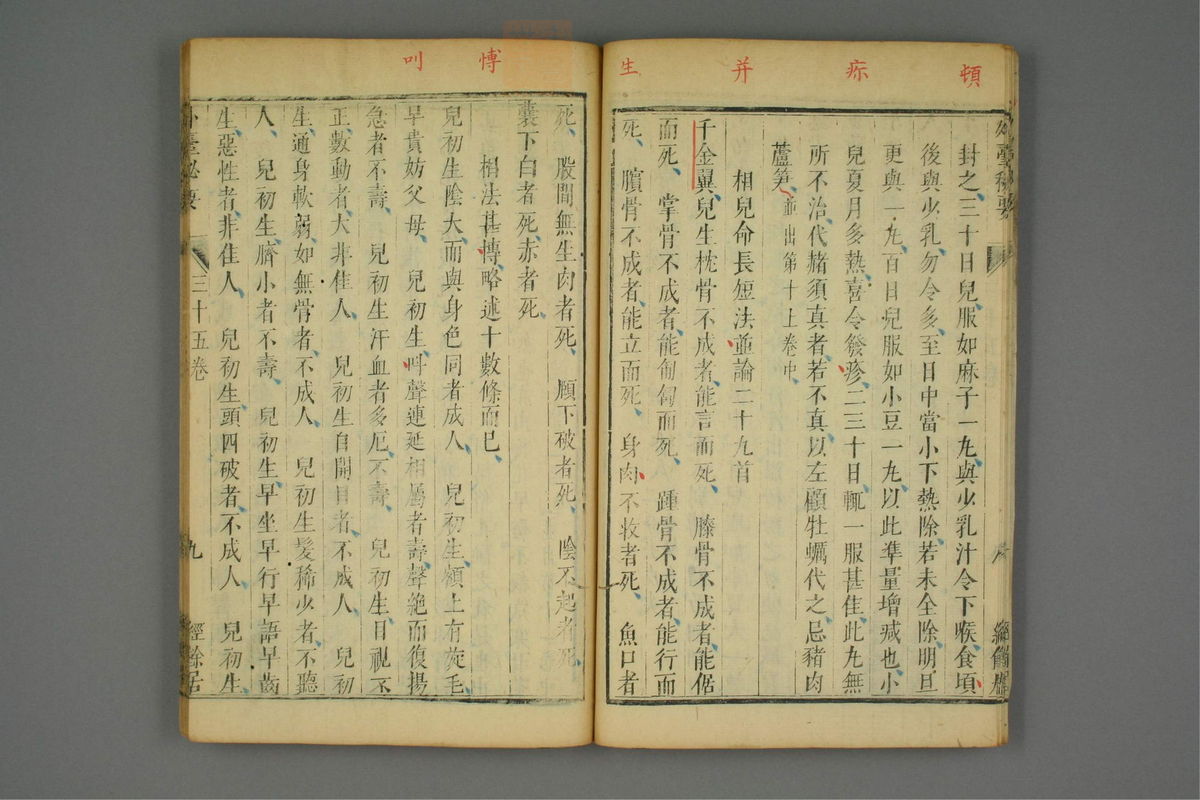 頓
疢
并
生
封之、三十日兒服如麻子一丸與少乳汁令下喉、食頃
後與少乳、勿令多、至日中當小下熱除、若未全除明旦
更與一丸、百日兒服如小豆一丸、以此準量增减也、小
兒夏月多熱、喜令發疹、二三十日輒一服甚佳、此丸無
所不治、代赭須真者、若不真以左顧牡蠣代之、忌豬肉
蘆笋、並出第十上卷中
相兒命長短法並論二十九首
千金翼、兒生枕骨不成者、能言而死、 膝骨不成者、能倨
而死、 掌骨不成者、能匍匐而死、 踵骨不成者、能行而
死、 臏骨不成者、能立而死、 身肉不收者死、 魚口者
悙
叫
死、 股間無生肉者死、 頤下破者死、 陰不起者死、
囊下白者死、赤者死、
相法甚博、略述十數條而已、
兒初生陰大而與身色同者成人、 兒初生額上有旋毛
早貴妨父母、 兒初生呌聲連延相屬者壽、聲絶而復揚
急者不壽、 兒初生汗血者多厄不壽、 兒初生目視不
正、數動者大非佳人、 兒初生自開目者、不成人、 兒初
生、通身軟弱如無骨者不成人、 兒初生髮稀少者、不聽
人、 兒初生臍小者不壽、 兒初生早坐早行早語早齒
生、惡性者、非佳人、 兒初生、頭四破者、不成人、 兒初生
外臺秘要 三十五卷 九 經餘居